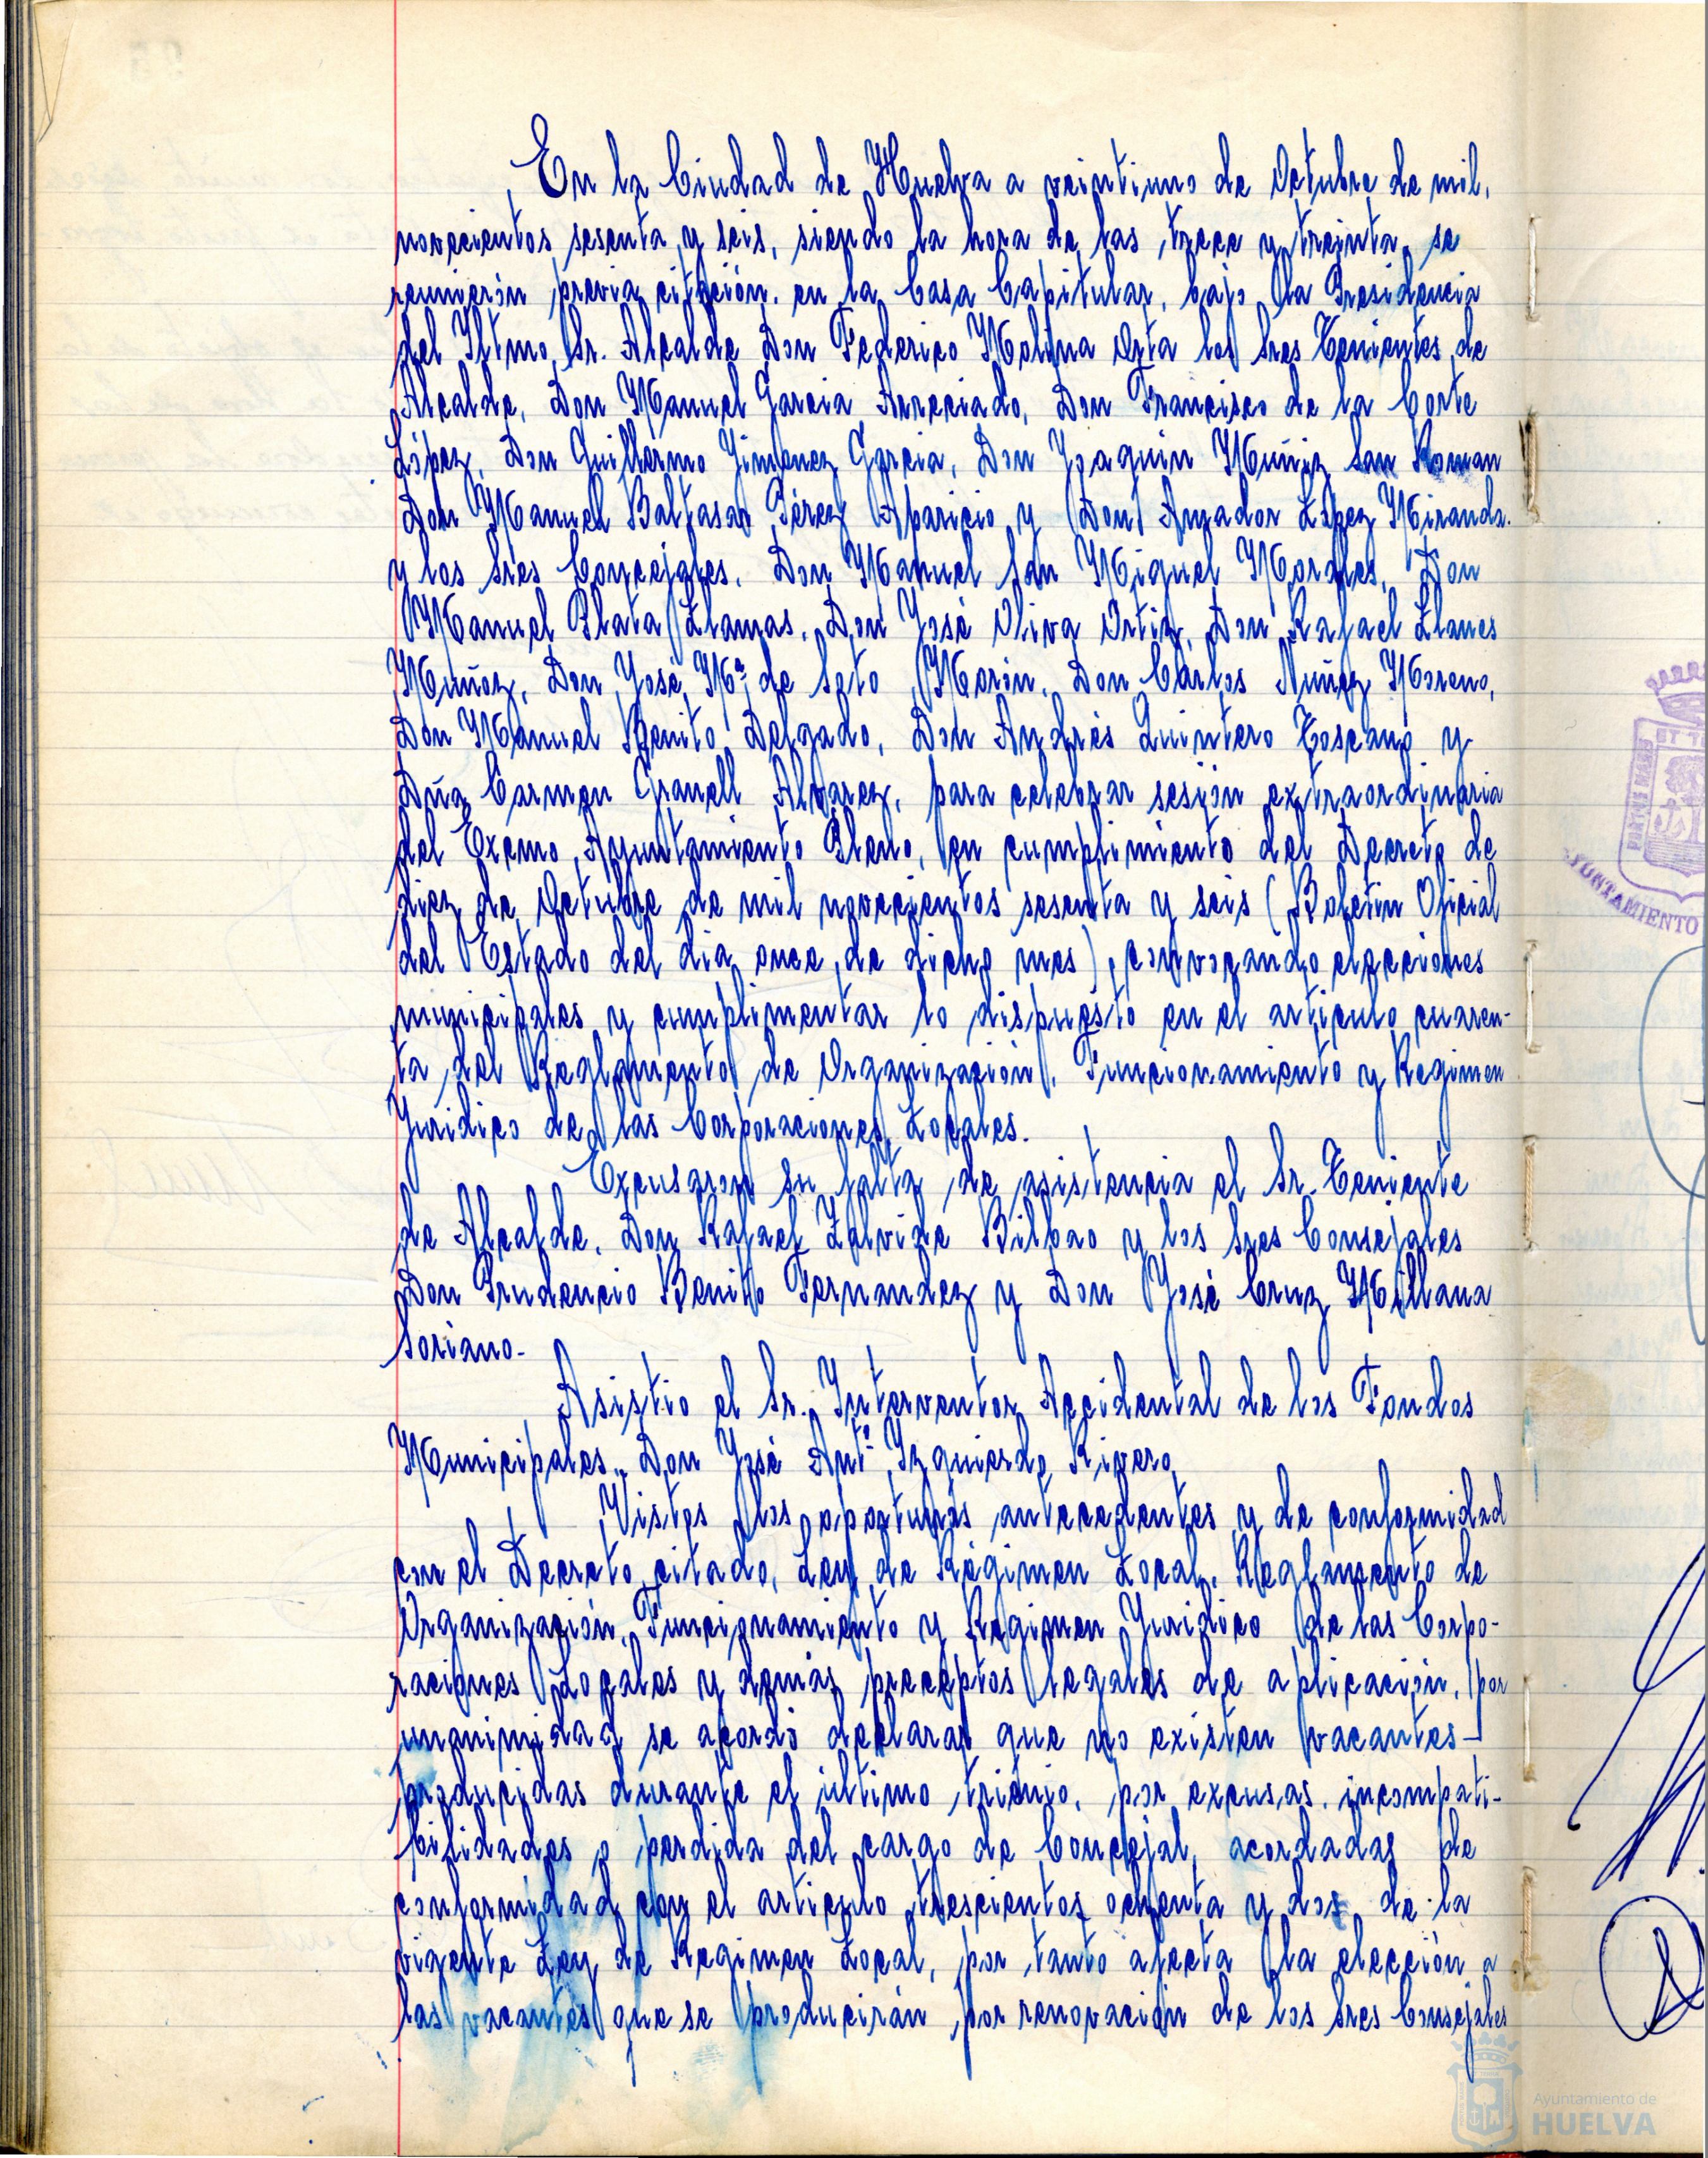 En la Ciudad de Huelva a veintiuno de Octubre de mil,
novecientos sesenta y seis, siendo la hora de las trece y treinta, se
reunierón previa citación, en la Casa Capitular, bajo la Presidencia
del Iltmo. Sr. Alcalde Don Federico Molina Orta los Sres Tenientes de
Alcalde, Don Manuel Garcia Arreciado, Don Francisco de la Corte
López, Don Guillermo Gimenez Garcia, Don Joaquin Muñiz San Roman
Don Manuel Baltasar Pérez Aparicio y Don Amador López Miranda.
y los Sres Concejales, Don Manuel San Miguel Morales, Don
Manuel Plata Llamas, Don José Oliva Ortiz, Don Rafael Llanes
Muñoz, Don José Mª de Soto Morón, Don Cárlos Nuñez Moreno,
Don Manuel Benito Delgado, Don Andrés Quintero Toscano y
Dña Carmen Granell Alvarez, para celebrar sesión extraordinaria
del Excmo Ayuntamiento Pleno, en cumplimiento del Decreto de
diez de Octubre de mil novecientos sesenta y seis (Boletin Oficial
del Estado del dia once de dicho mes), convocando elecciones
municipales y cumplimentar lo dispuesto en el articulo cuaren-
ta del Reglamento de Organización, Funcionamiento y Regimen
Juridico de las Corporaciones Locales.
Excusaron su falta de asistencia el Sr. Teniente
de Alcalde, Don Rafael Zalvide Bilbao y los Sres Consejales
Don Prudencio Benito Fernandez y Don José Cruz Millana
Soriano.
Asistio el Sr. Interventor Accidental de los Fondos
Municipales, Don José Antº Izquierdo Rivero.
Vistos los oportunos antecedentes y de conformidad
con el Decreto citado, Ley de Régimen Local, Reglamento de
Organización, Funcionamiento y Regimen Juridico de las Corpo-
raciones Locales y demás preceptos legales de aplicación, por
unanimidad se acordó declarar que no existen vacantes
producidas durante el último trienio, por excusas, incompati-
bilidades o perdida del cargo de Concejal, acordadas de
conformidad con el articulo trescientos ochenta y dos de la
vigente Ley de Regimen Local, por tanto afecta la elección a
las vacantes que se producirán por renovación de los Sres Consejales
AYUNTAMIENTO
Ayuntamiento de
HUELVA